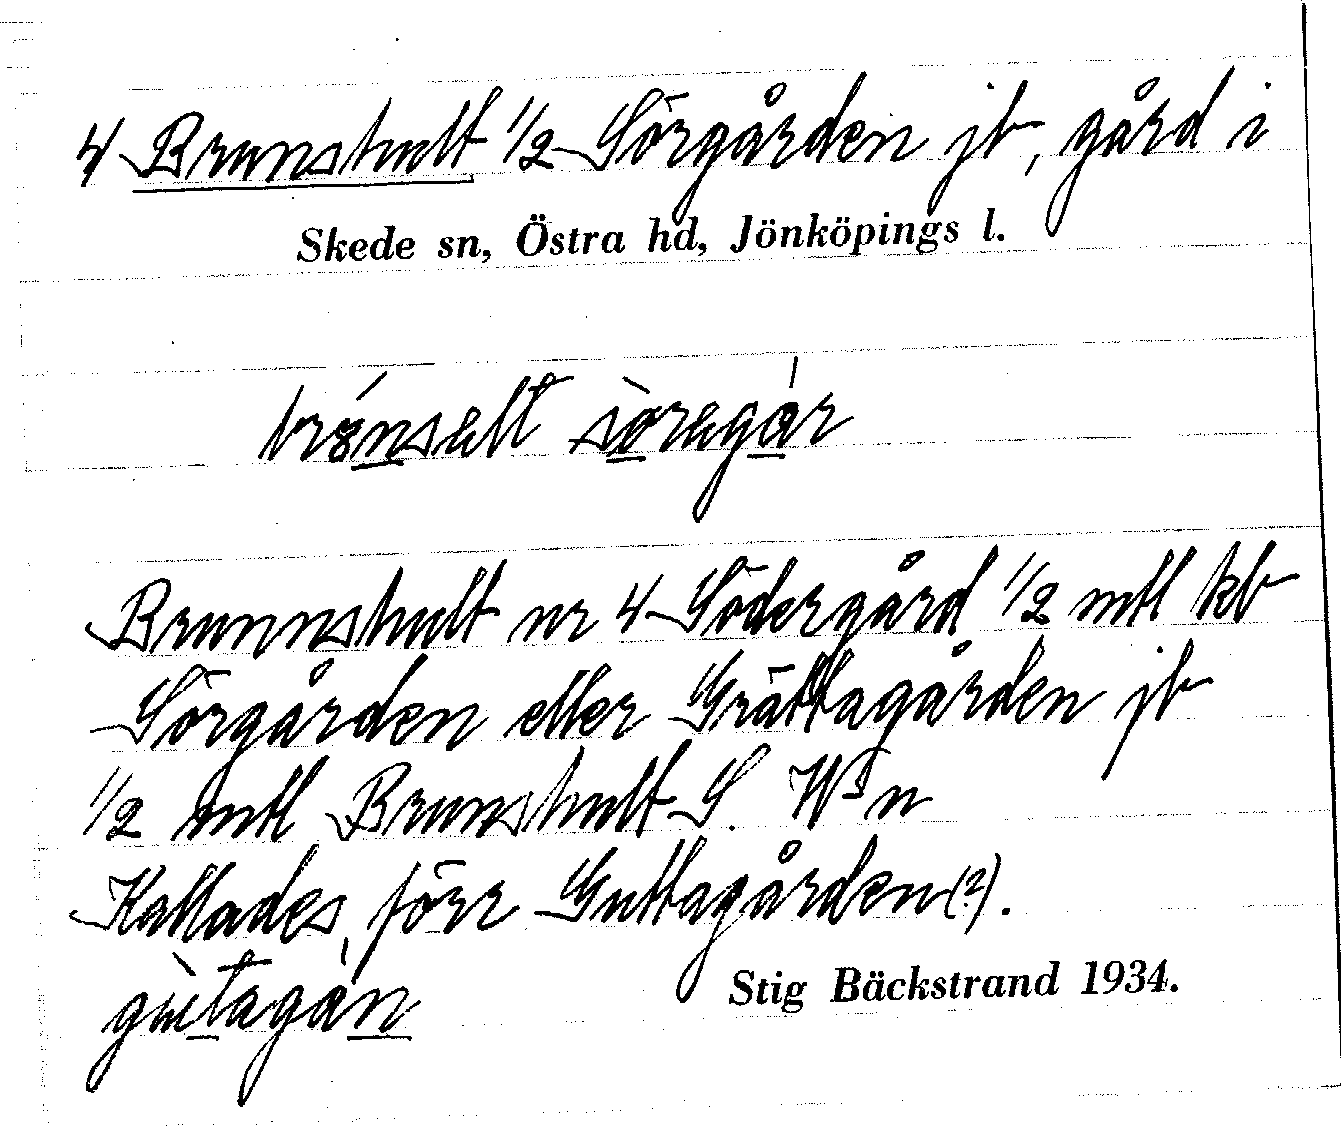 4 Brunshult 1/2 Sörgården jb, gård i
Skede sn, Östra hd, Jönköpings l.
sòregár
Brunnshult nr 4 Södergård 1/2 mtl kb
Sörgården eller Grättagården jb
1/2 mtl Brunshult S. W-n
Kallades förr Guttagården (?).
gùtagàn
Stig Bäckstrand 1934.